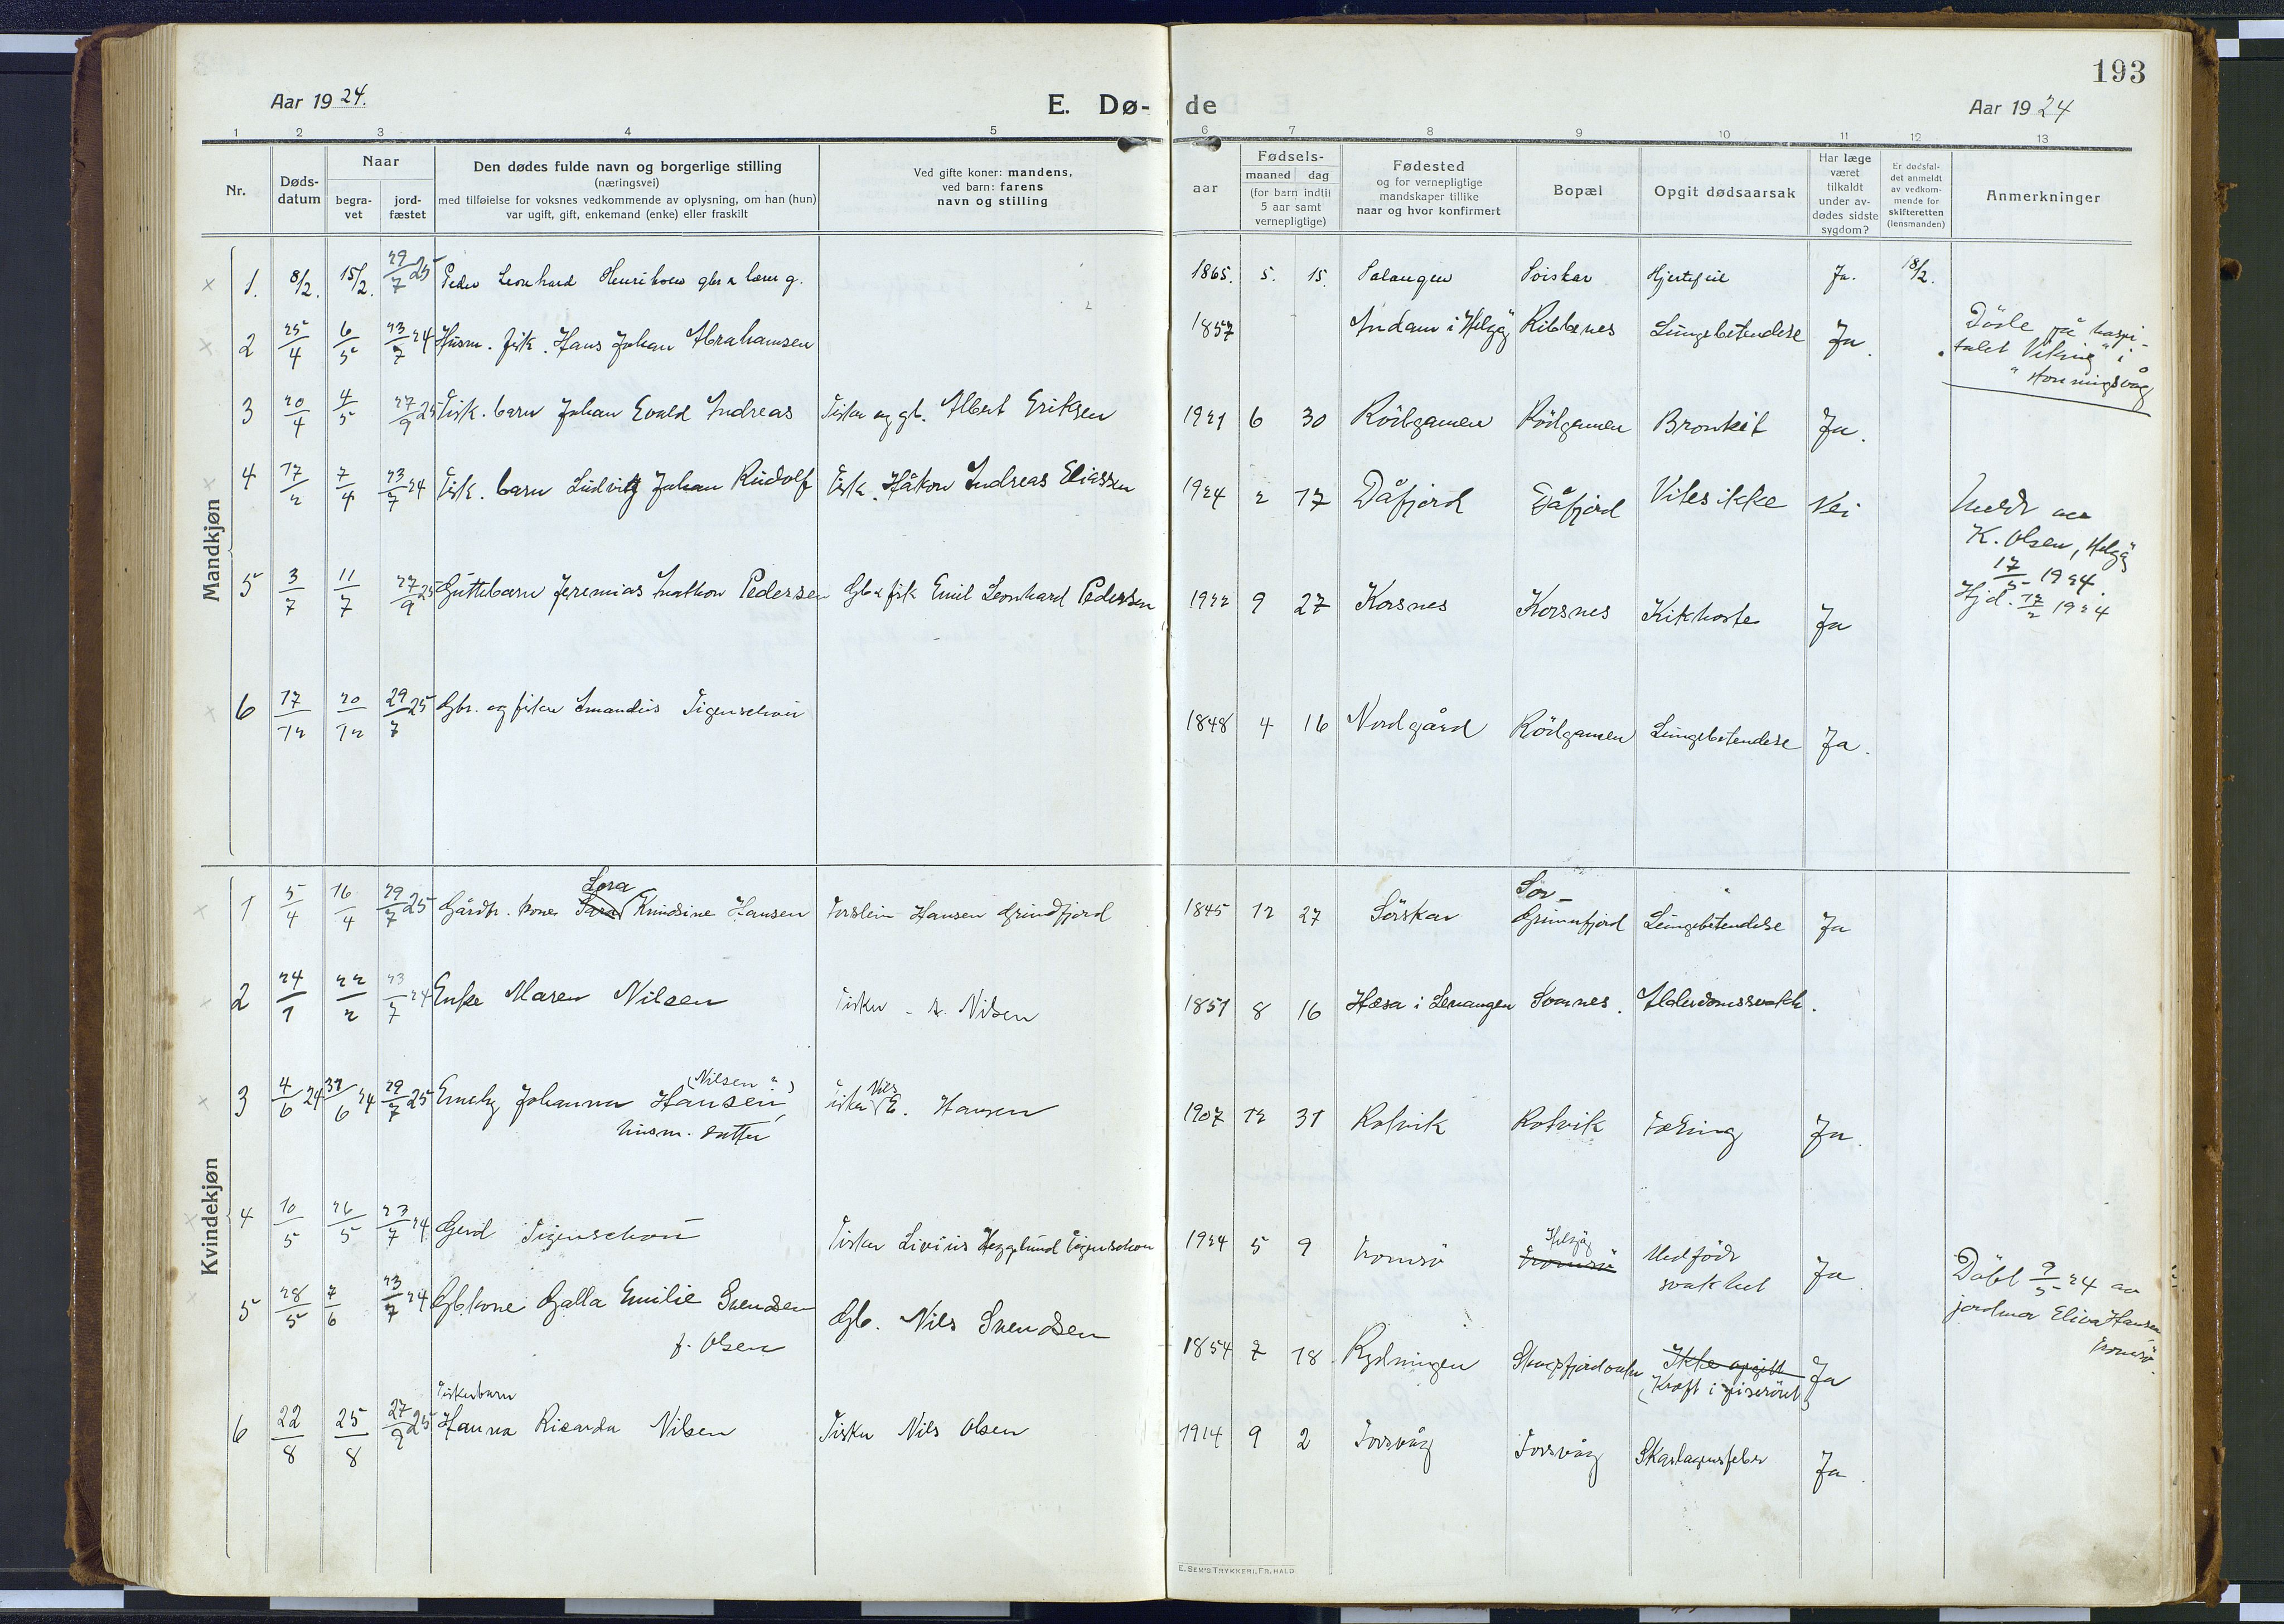 193
Aar 1924.
E. Dø-
de
Aar 1924
1 2 3 4 5 6 7 8 9 10 11 12 13
Nr.
Døds-
datum
Naar
begra-
vet
jord-
fæstet
Den dødes fulde navn og borgerlige stilling
(næringsvei)
med tilføielse for voksnes vedkommende av oplysning, om han (hun)
var ugift, gift, enkemand (enke) eller fraskilt
Ved gifte koner: mandens,
ved barn: farens
navn og stilling
Fødsels-
aar
maaned dag
(for barn indtil
5 aar samt
vernepligtige)
Fødested
og for vernepligtige
mandskaper tillike
naar og hvor konfirmert
Bopæl
Opgit dødsaarsak
Har læge
været
tilkaldt
under av-
dødes sidste
sygdom?
Er dødsfal-
det anmeldt
av vedkom-
mende for
skifteretten
(lensmanden)
Anmerkninger
Mandkjøn
1. 8/2. 15/2. 29/7 25 Peder Leonhard Henriksen g. 1865. 5. 15. Salangen Hjertefeil Ja. 18/2.
2 25/4 6/5 23/7 24 Husm. fisk. Hans Johan Abrahamsen 1857 Indam i Helgøy Ribbenes Lungebetendelse Ja.
Döde på hospi-
talet "Viking" i
Honningsvåg
3 20/4 4/5 27/9 25 Fisk. barn Johan Evald Andreas Fisker og gb. Albert Eriksen 1921 6 30 Rödgamen Rödgamen Bronkit Ja.
4 17/2 7/4 23/7 24 Fisk. barn Ludvig Johan Rudolf Fisk. Håkon Andreas Eliassen 1924 2 17 Dåfjord Dåfjord Vites ikke Nei
K. Olsen, Helgöy
17/5 1924.
Hjd. 17/2 1924
5 3/7 11/7 27/9 25 Guttebarn Jeremias Pedersen Gb & fisk Emil Leonhard Pedersen 1922 9 27 Korsnes Korsnes Kikhoste Ja
6 17/12 20/12 29/7 25 Gbr. og fisker Amandus Figenschou 1848 4 16 Nordgård Rödgamen Lungebetendelse Ja.
Kvindekjøn
Lora
1 5/4 16/4 29/7 25 Gårdbr. kone Sara Knudsine Hansen Torstein Hansen Grundfjord 1845 12 27 Sörskar Sör-
Grunnfjord Lungebetendelse Ja
2 24/1 22/2 23/7 24 Enke Maren Nilsen Fisker Nilsen 1851 8 16 Svannes. Alderdomssvakh.
(Nilsen?)
3 4/6 24 31/6 24 29/7 25 Johanna Hansen, Fisker Nils E. Hansen 1907 12 31 Rotvik Rotvik Tæring Ja.
husm. datter
4 10/5 26/5 23/7 24 Gerd Figenschou Fisker Livius Hegglund Figenschou 1924 5 9 Tromsö Helgöy
Tromsö Medfödt
svakhet Ja
Döbt 9/5 24 av
jordmor Elisa Hansen
Tromsö.
5 28/5 7/6 23/7 24 Gbkone Galla Emilie Svendsen Gb. Nils Svendsen
f. Olsen
1854 7 18 Rydningen Ikke opgitt
(Kræft i spiseröret) Ja
Fiskerbarn
6 22/8 25/8 27/9 25 Hanna Ricarda Nilsen Fisker Nils Olsen 1914 9 2 Torsvåg Torsvåg Skarlagensfeber Ja.
E. SEM'S TRYKKERI, FR.HALD